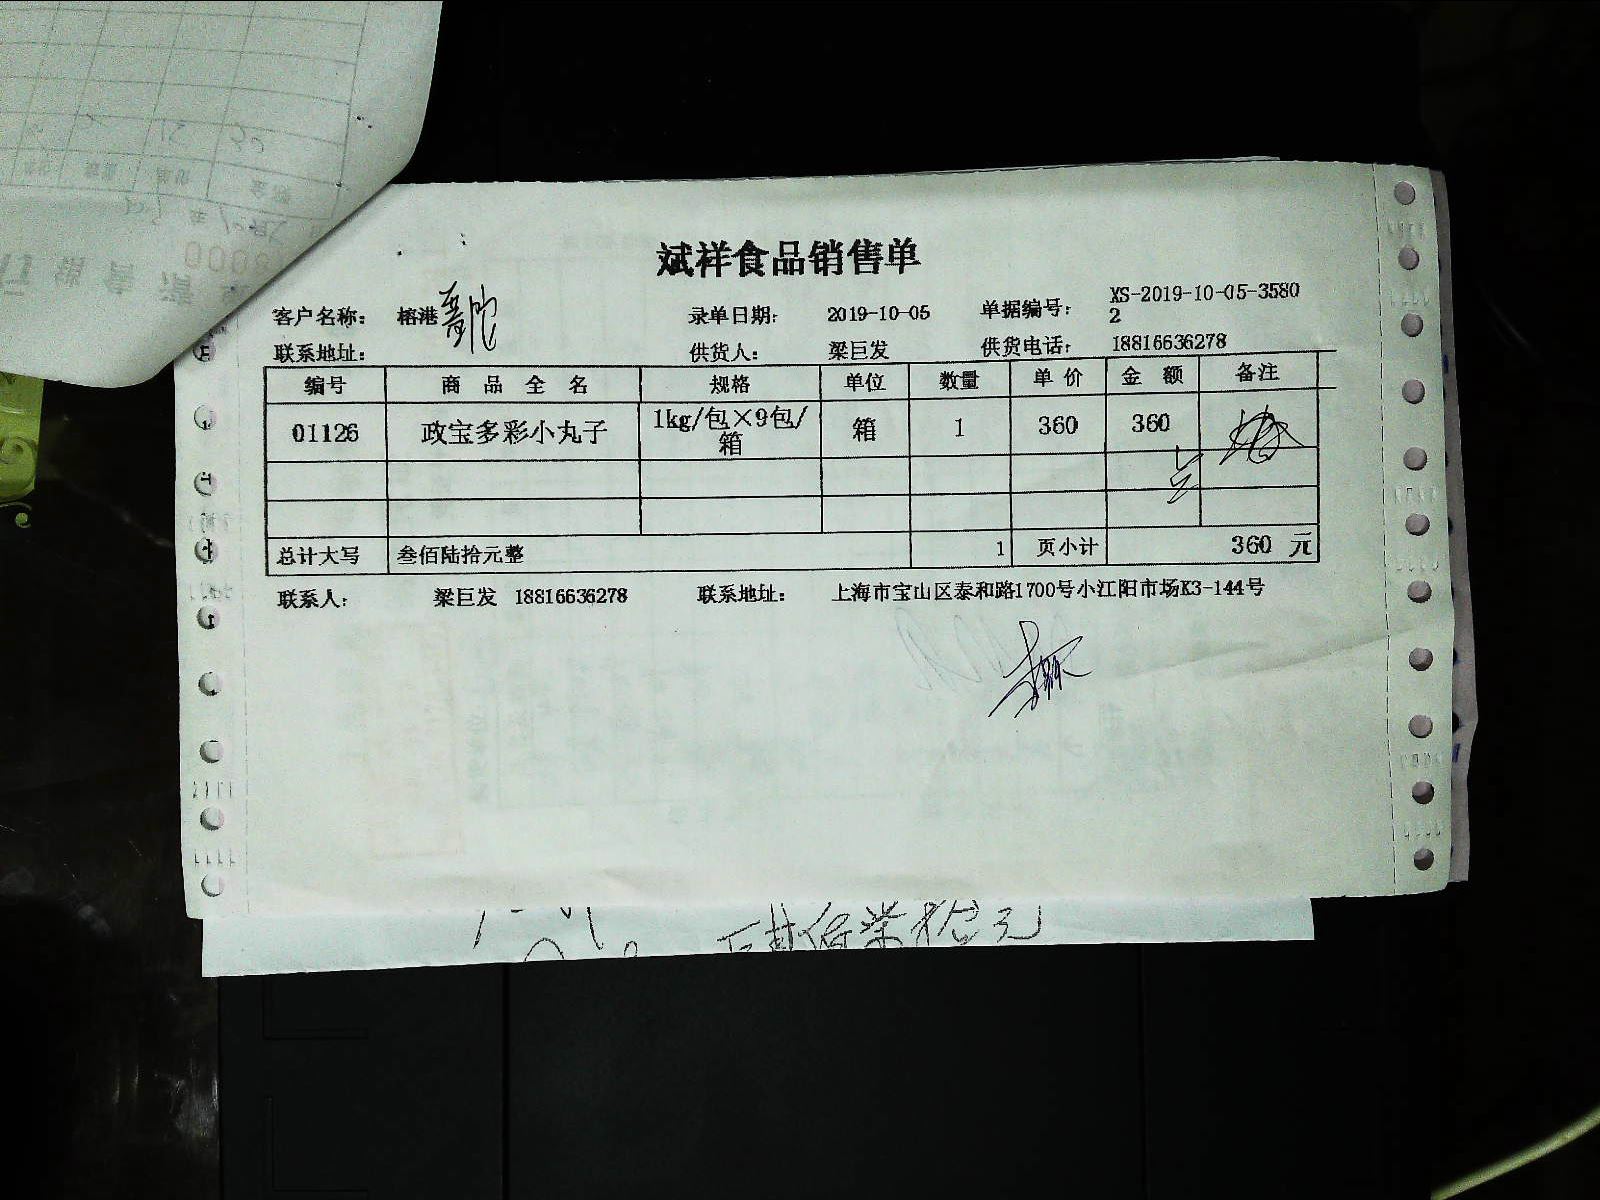 斌祥食品销售单
客户名称： 榕港普陀 录单日期： 2019-10-05 单据编号： XS-2019-10-05-3580
2
联系地址： 供货人： 梁巨发 供货电话： 18816636278
编号 商品全名 规格 单位 数量 单价 金额 备注
01126 政宝多彩小丸子 1kg/包×9包/ 箱 1 360 360
箱
总计大写 叁佰陆拾元整 1 页小计 360 元
联系人： 梁巨发 18816636278 联系地址： 上海市宝山区泰和路1700号小江阳市场K3-144号